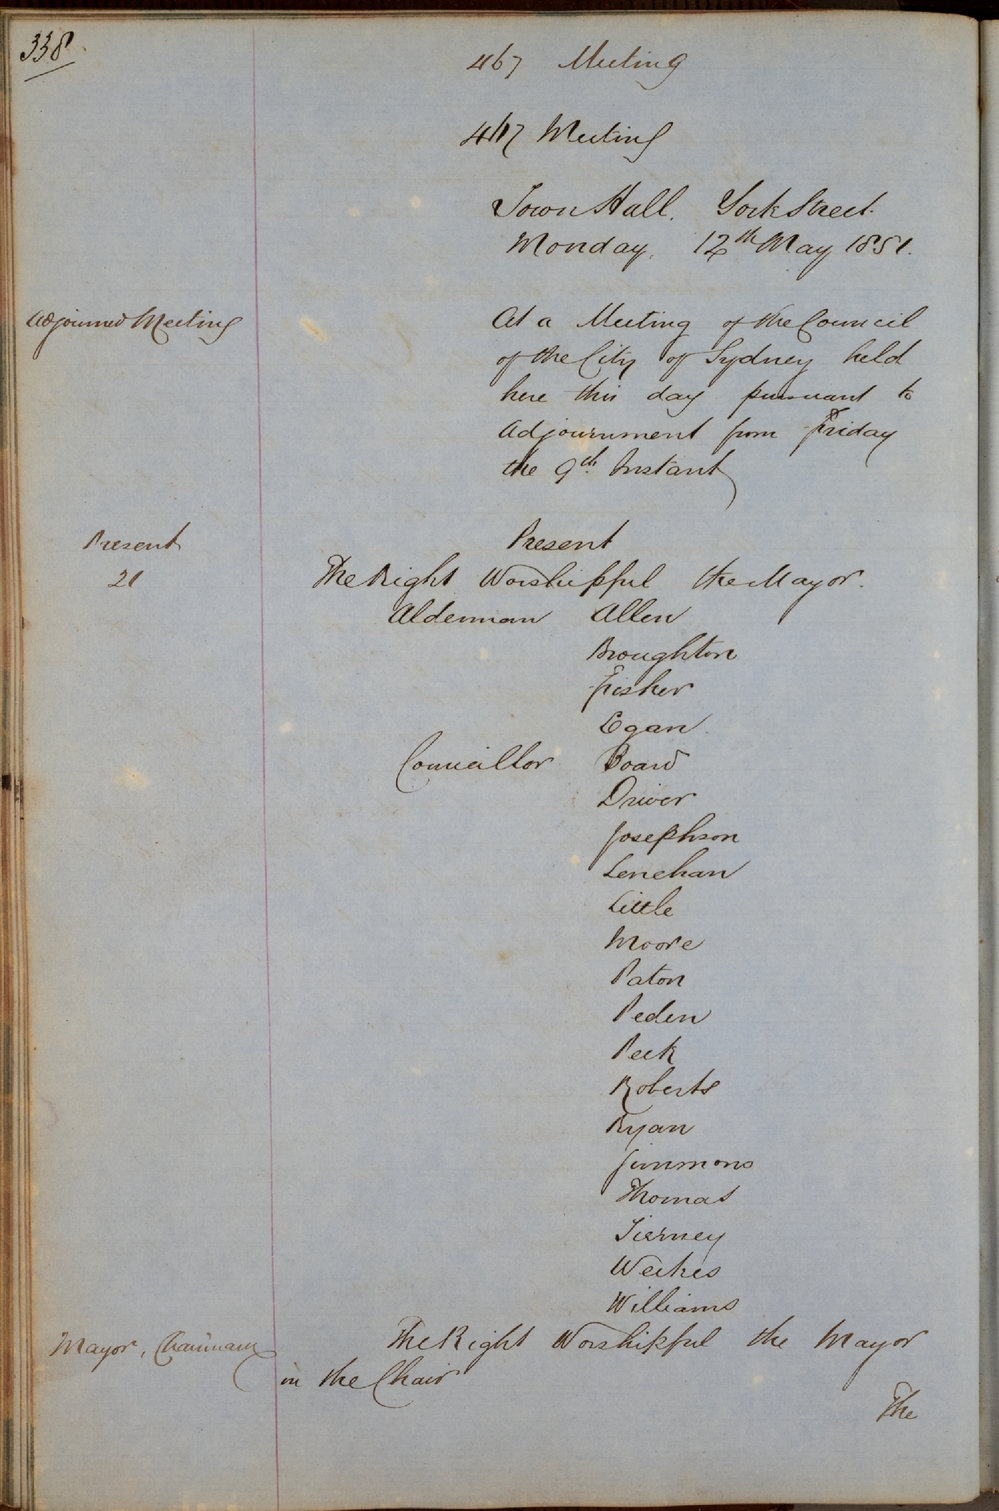 338
467 Meeting
467 Meeting
Town Hall. York Street.
Monday, 12th May 1851.
Adjourned Meeting
At a Meeting of the Council
of the City of Sydney held
here this day pursuant to
Adjournment from Friday
the 9th Instant
Present
21
Present
The Right Worshipful the Mayor.
Alderman Allen
Broughton
Fisher
Egan
Councillor Board
Driver
Josephson
Lenehan
Little
Moore
Paton
Peden
Peek
Roberts
Ryan
Simmons
Thomas
Tierney
Weekes
Williams
Mayor, Chairman
The Right Worshipful the Mayor
in the Chair
The